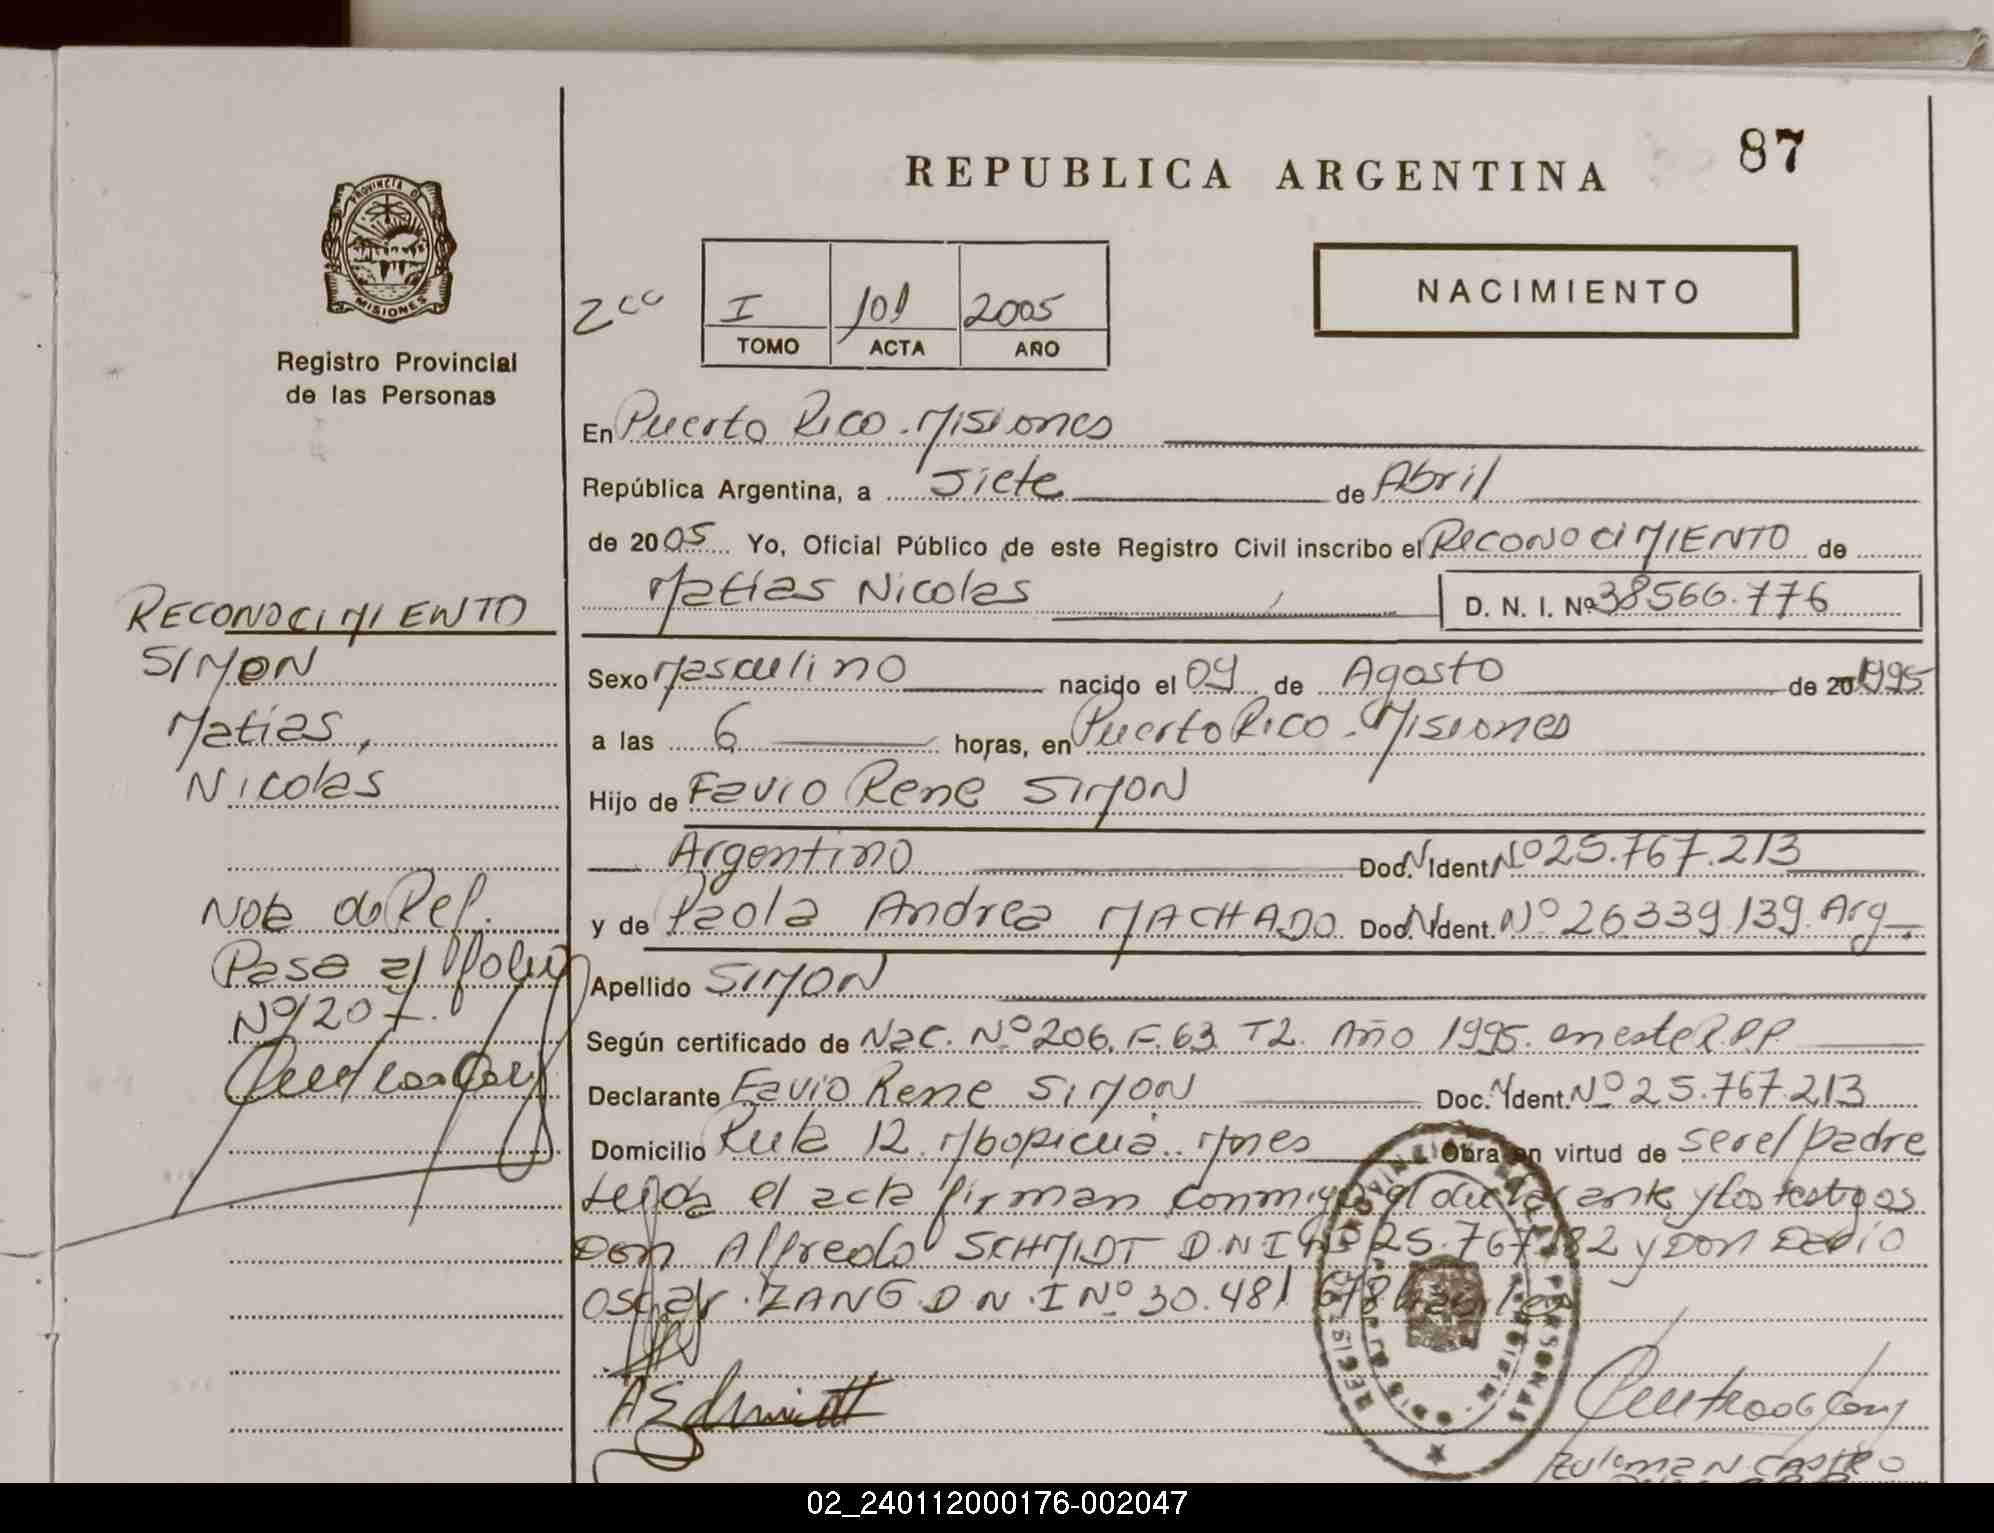 87
REPUBLICA ARGENTINA
PROVINCIA DE
MISIONES
Registro Provincial
de las Personas
I 101 2005
TOMO ACTA AÑO
NACIMIENTO
En Puerto Rico. Misiones
República Argentina, a Siete de Abril
de 2005 Yo, Oficial Público de este Registro Civil inscribo el RECONOCIMIENTO de
Matías Nicolas D. N. I. Nº 38566.776
Sexo Masculino nacido el 09 de Agosto de 20 1995
a las 6 horas, en Puerto Rico. Misiones
Hijo de Favio Rene SIMON
Argentino Doc. N. Ident. Nº 25.767.213
y de Paola Andrea MACHADO Doc. N. Ident. Nº 26339.139. Arg.
Apellido SIMON
Según certificado de Nac. Nº 206. F. 63 T2. Año 1995. en este R.P.P
Declarante Favio Rene SIMON Doc. N. Ident. Nº 25.767.213
Domicilio Ruta 12. Mbopicuá. Mnes Obra en virtud de ser el padre
Leída el acta firman conmigo el declarante y los testigos
Don Alfredo SCHMIDT D.N.I Nº 25.767.182 y Don Dario
Oscar ZANG D.N.I Nº 30.481 678 habiles
RECONOCIMIENTO
SIMON
Matías,
Nicolas
Nota de Ref.
Pasa al folio
Nº 207.
Zulema N. CASTRO
02_240112000176-002047